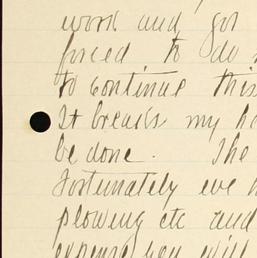 work and got
forced to do
to continue this
It breaks my
be done. The
Fortunately we
plowing etc and
expense you will